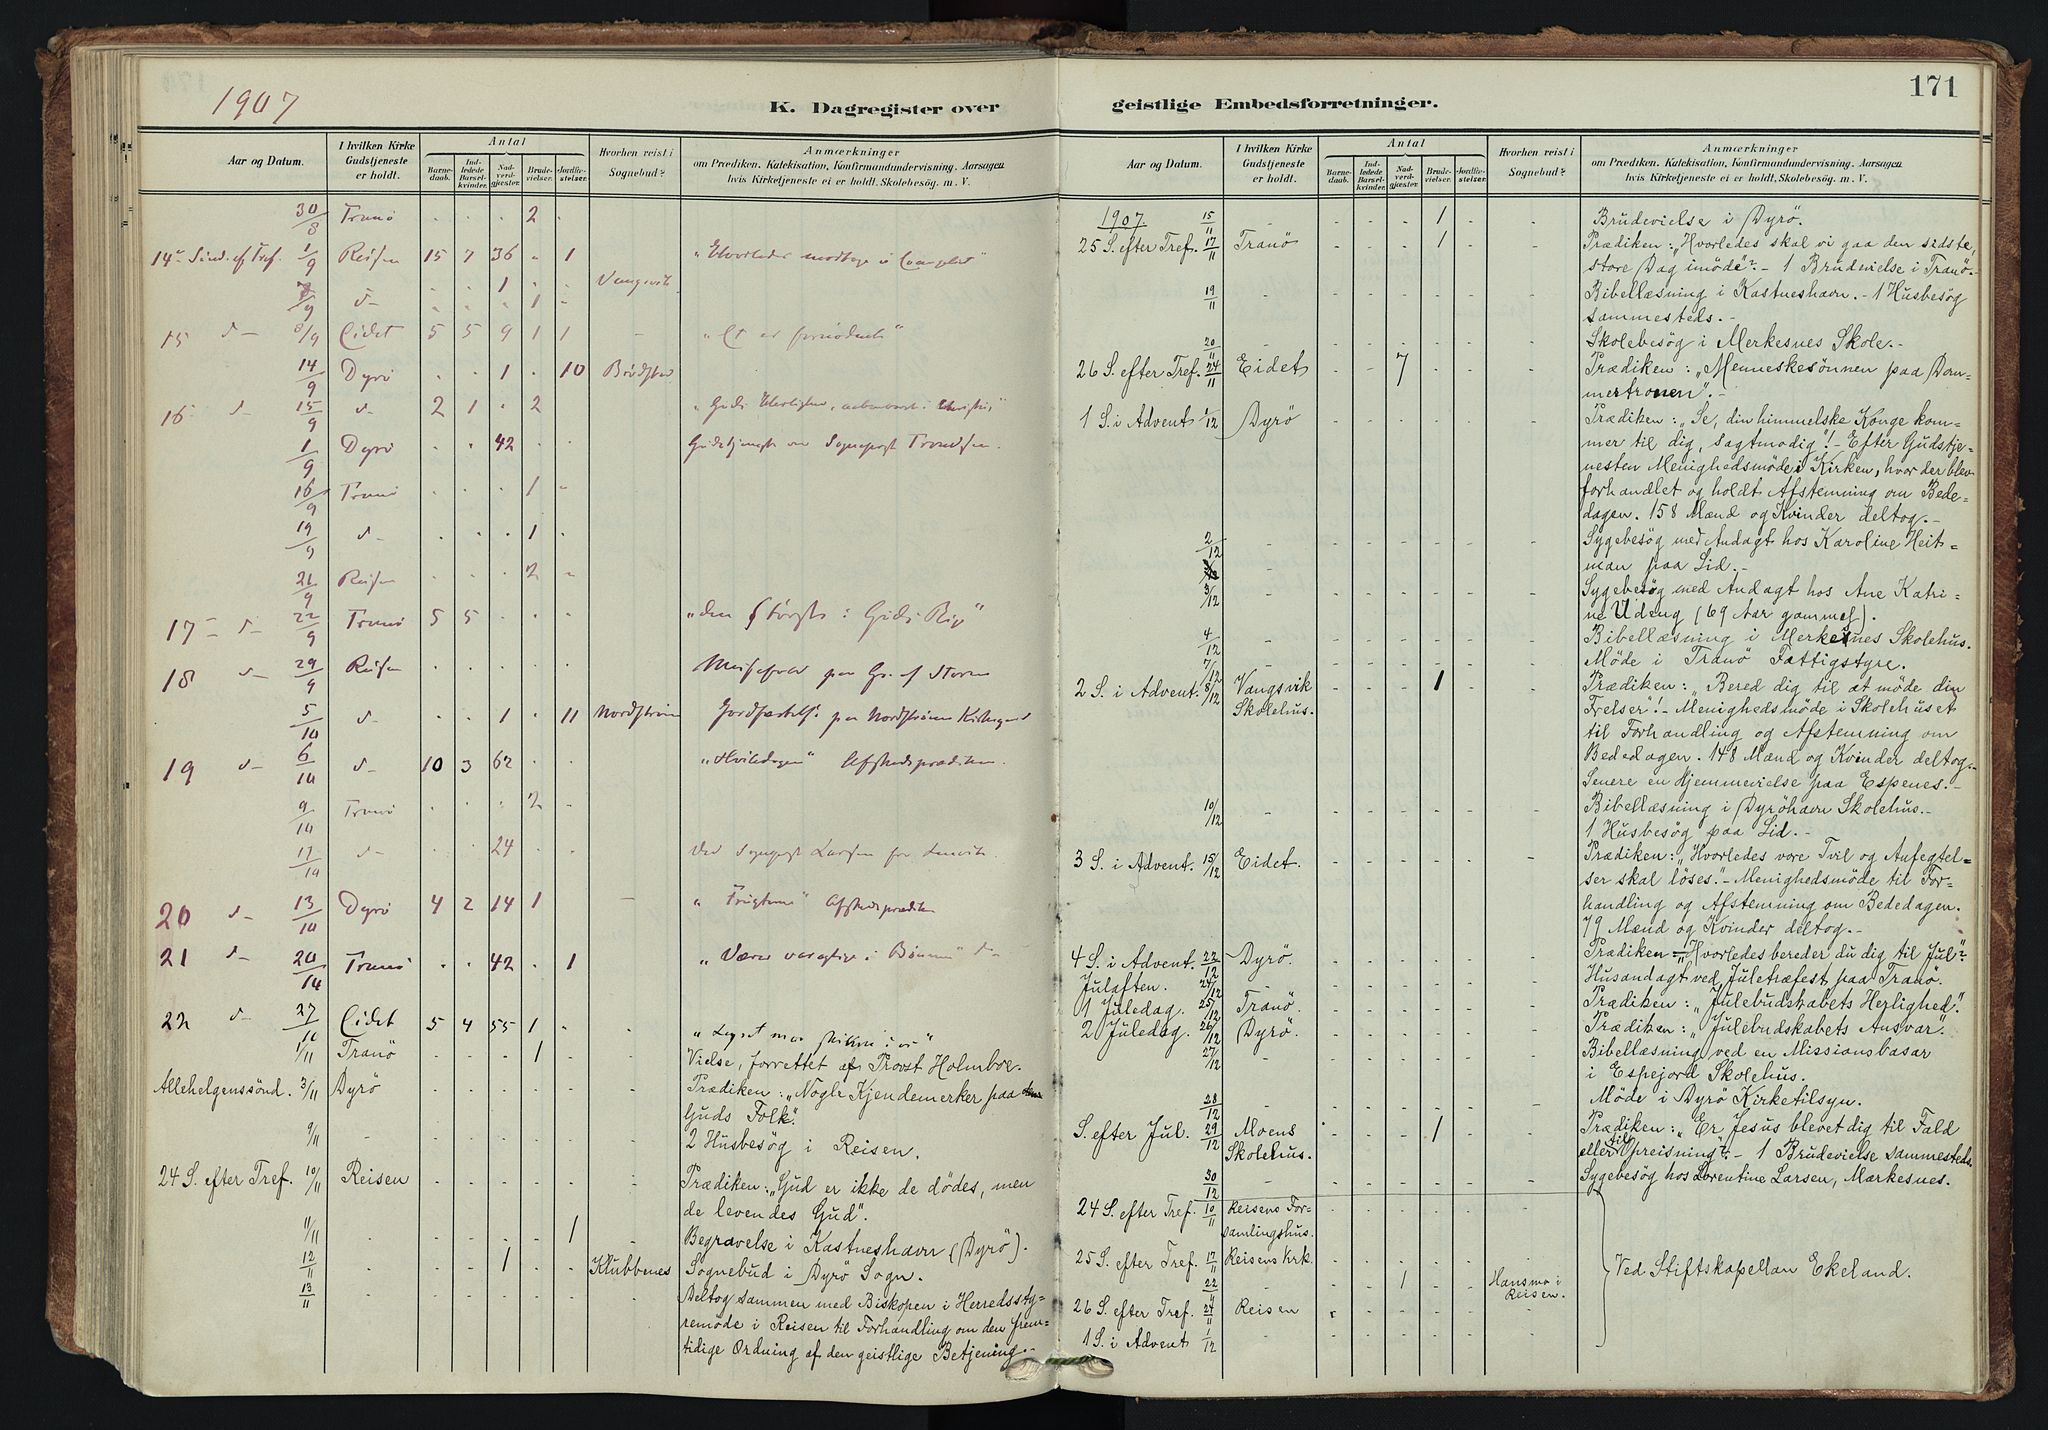 1907
K. Dagregister over
Aar og Datum. | I hvilken Kirke Gudstjeneste er holdt. | Antal | Barnedaab. | Indledede Barselkvinder. | Nadverdgjester. | Brudevielser. | Jordfæstelser. | Hvorhen reist i Sognebud? | Anmærkninger om Prædiken, Katekisation, Konfirmandundervisning, Aarsagen hvis Kirketjeneste ei er holdt, Skolebesøg m. V.
30/8 Tranö . . . 2 .
14de Sønd. ef Tref. 1/9 Reisen 15 7 36 . 1
7/9 d— . . 1 . . Vangsvik
. . . 1 –
15 d— 8/9 Eidet 5 5 9 1 1 – "Et er fornødent"
14/9 Dyrö . . 1 . 10 Brödstad
16 d— 15/9 d— 2 1 . 2
1/9 Dyrö . . 42 . . Gudstjeneste ved Sogneprest
16/9 Tranö . . . 1 –
19/9 d— . . . 1 .
21/9 Reisen . . . 2 –
17 d— 22/9 Tranö 5 5 . . . "Den største i Guds Rige"
18 d— 29/9 Reisen . . . . . Messefald paa Gr. af Storm
5/10 d— . . 1 . 11 Nordstrøm Jordfæstelse paa Nordstrøm Kirkegaard
19 d— 6/10 d— 10 3 62 . . "Hviledagen" Afskedsprædiken.
9/10 Tranö . . . 2 –
17/10 d— 24 . . Ved Sogneprest Larsen fra Lenvik.
20 d— 13/10 Dyrö 4 2 14 1 – Afskedsprædiken
21 d— 20/10 Tranö . . 42 . 1 "Værer varagtige i Bønnen" d—
22 d— 27/10 Eidet 5 4 55 1 .
1/11 Tranö . . . 1 . Vielse, forrettet af Provst Holmboe.
Allehelgenssönd. 3/11 Dyrö . . . . . Prædiken: "Nogle Kjendemerker paa
Guds Folk".
9/11 – . . . . . 2 Husbesög i Reisen.
24 S. efter Tref. 10/11 Reisen . . . . . Prædiken: "Gud er ikke de dödes, men
de levendes Gud".
11/11 . . . . 1 Begravelse i Kastneshavn (Dyrö).
12/11 . . 1 . . Klubbenes Sognebud i Dyrö Sogn.
13/11 . . . . . Deltog sammen med Biskopen i Herredssty-
remöde i Reisen til Forhandling om den frem-
tidige Ordning af den geistlige Betjening.-
171
geistlige Embedsforretninger.
Aar og Datum. | I hvilken Kirke Gudstjeneste er holdt. | Antal | Barnedaab. | Indledede Barselkvinder. | Nadverdgjester. | Brudevielser. | Jordfæstelser. | Hvorhen reist i Sognebud? | Anmærkninger om Prædiken, Katekisation, Konfirmandundervisning, Aarsagen hvis Kirketjeneste ei er holdt, Skolebesøg m. V.
1907. 15/11 – – – – 1 – – Brudevielse i Dyrö.
25 S. efter Tref. 17/11 Tranö – – – 1 – – Prædiken: "Hvorledes skal vi gaa den sidste,
store Dag imöde"? – 1 Brudevielse i Tranö.-
19/11 – Bibellæsning i Kastneshavn. – 1 Husbesög
sammesteds. –
20/11 – Skolebesög i Merkesnes Skole.-
26 S. efter Tref. 24/11 Eidet – – 7 – – – Prædiken: "Menneskesönnen paa Dom-
mertronen". –
1 S. i Advent 1/12 Dyrö Prædiken: "Se, din himmelske Konge kom-
mer til dig, sagtmodig"! – Efter Gudstje-
nesten Menighedsmöde i Kirken, hvor der blev
forhandlet og holdt Afstemning om Bede-
dagen. 158 Mænd og Kvinder deltog.-
2/12 – Sygebesög med Andagt hos Karoline Heit-
man paa Lid.-
3/12 – Sygebesög med Andagt hos Ane Katri-
ne Udeng (69 Aar gammel).
4/12 – Bibellæsning i Merkesnes Skolehus.
7/12 – Möde i Tranö Fattigstyre.
2 S. i Advent. 8/12 Vangsvik Skolehus. – – – 1 – – Prædiken: "Bered dig til at möde din
Frelser! – Menighedsmöde i Skolehuset
til Forhandling og Afstemning om
Bededagen. 148 Mænd og Kvinder deltog.-
Senere en Hjemmevielse paa Espenes.-
10/12 – Bibellæsning i Dyröhavn Skolehus.-
1 Husbesög paa Lid. –
3 S. i Advent. 15/12 Eidet. Prædiken: "Hvorledes vore Tvil og Anfegtel-
ser skal löses." – Menighedsmöde til For-
handling og Afstemning om Bededagen.
79 Mænd og Kvinder deltog.–
4 S. i Advent. 22/12 Dyrö. Prædiken – "Hvorledes bereder du dig til Jul"?
Julaften. 24/12 – Husandagt ved Juletræfest paa Tranö.
1 Juledag. 25/12 Tranö. Prædiken: "Julebudskabets Herlighed".
2 Juledag. 26/12 Dyrö. Prædiken: "Julebudskabets Ansvar".
27/12 – Bibellæsning ved en Missionsbasar
i Espejord Skolehus.
28/12 – Möde i Dyrö Kirketilsyn.
S. efter Jul. 29/12 Moens Skolehus. – – – 1 – – Prædiken: "Er Jesus blevet dig til Fald
eller til Opreisning"? – 1 Brudevielse sammesteds.
30/12 – Sygebesög hos Lorentine Larsen, Merkesnes.
24 S. efter Tref. 10/11 Reisens For-
samlingshus.
25 S. efter Tref. 17/11 Reisens Kirk.
Ved Stiftskapellan Ekeland.
22/11 – – – 1 – – Hansmo i
Reisen.
26 S. efter Tref. 24/11 Reisen
1 S. i Advent 1/12